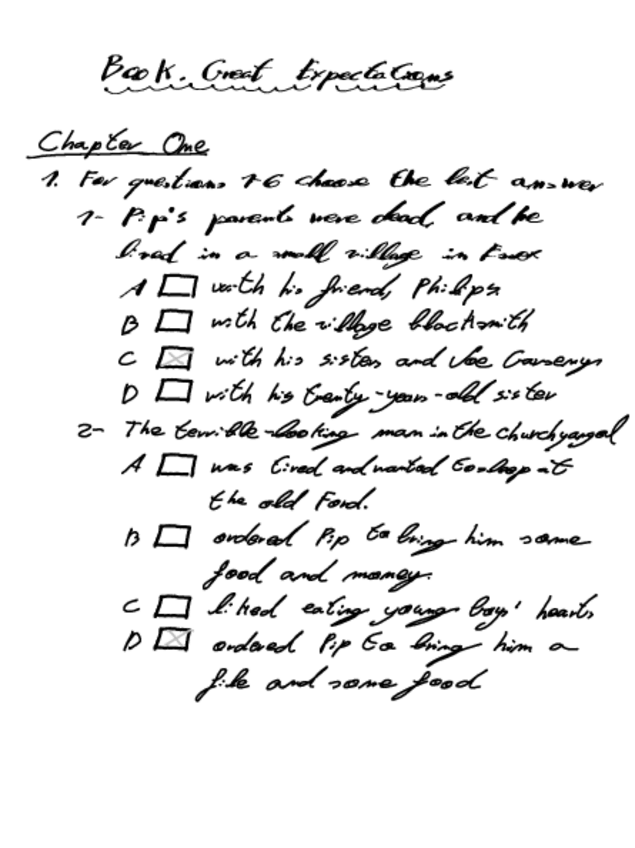 Book. Great Expectations
Chapter One
1. For questions 1-6 choose the best answer
1- Pip's parents were dead, and he
lived in a small village in Essex
A with his friend, Philips
B with the village blacksmith
C with his sister and Joe Gargery
D with his twenty-years-old sister
2- The terrible-looking man in the churchyard
A was tired and wanted to sleep at
the old Ford.
B ordered Pip to bring him some
food and money.
C liked eating young boys' hearts
D ordered Pip to bring him a
file and some food